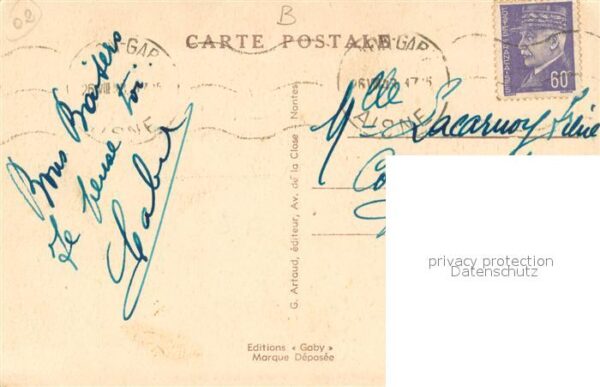 02
B
CARTE POSTALE
60
Bons Baisers
Je pense à toi.
Gaby
Mlle Lacarnoy
G. Artaud, éditeur, Av. de la Close Nantes
Editions « Gaby »
Marque Déposée
privacy protection
Datenschutz